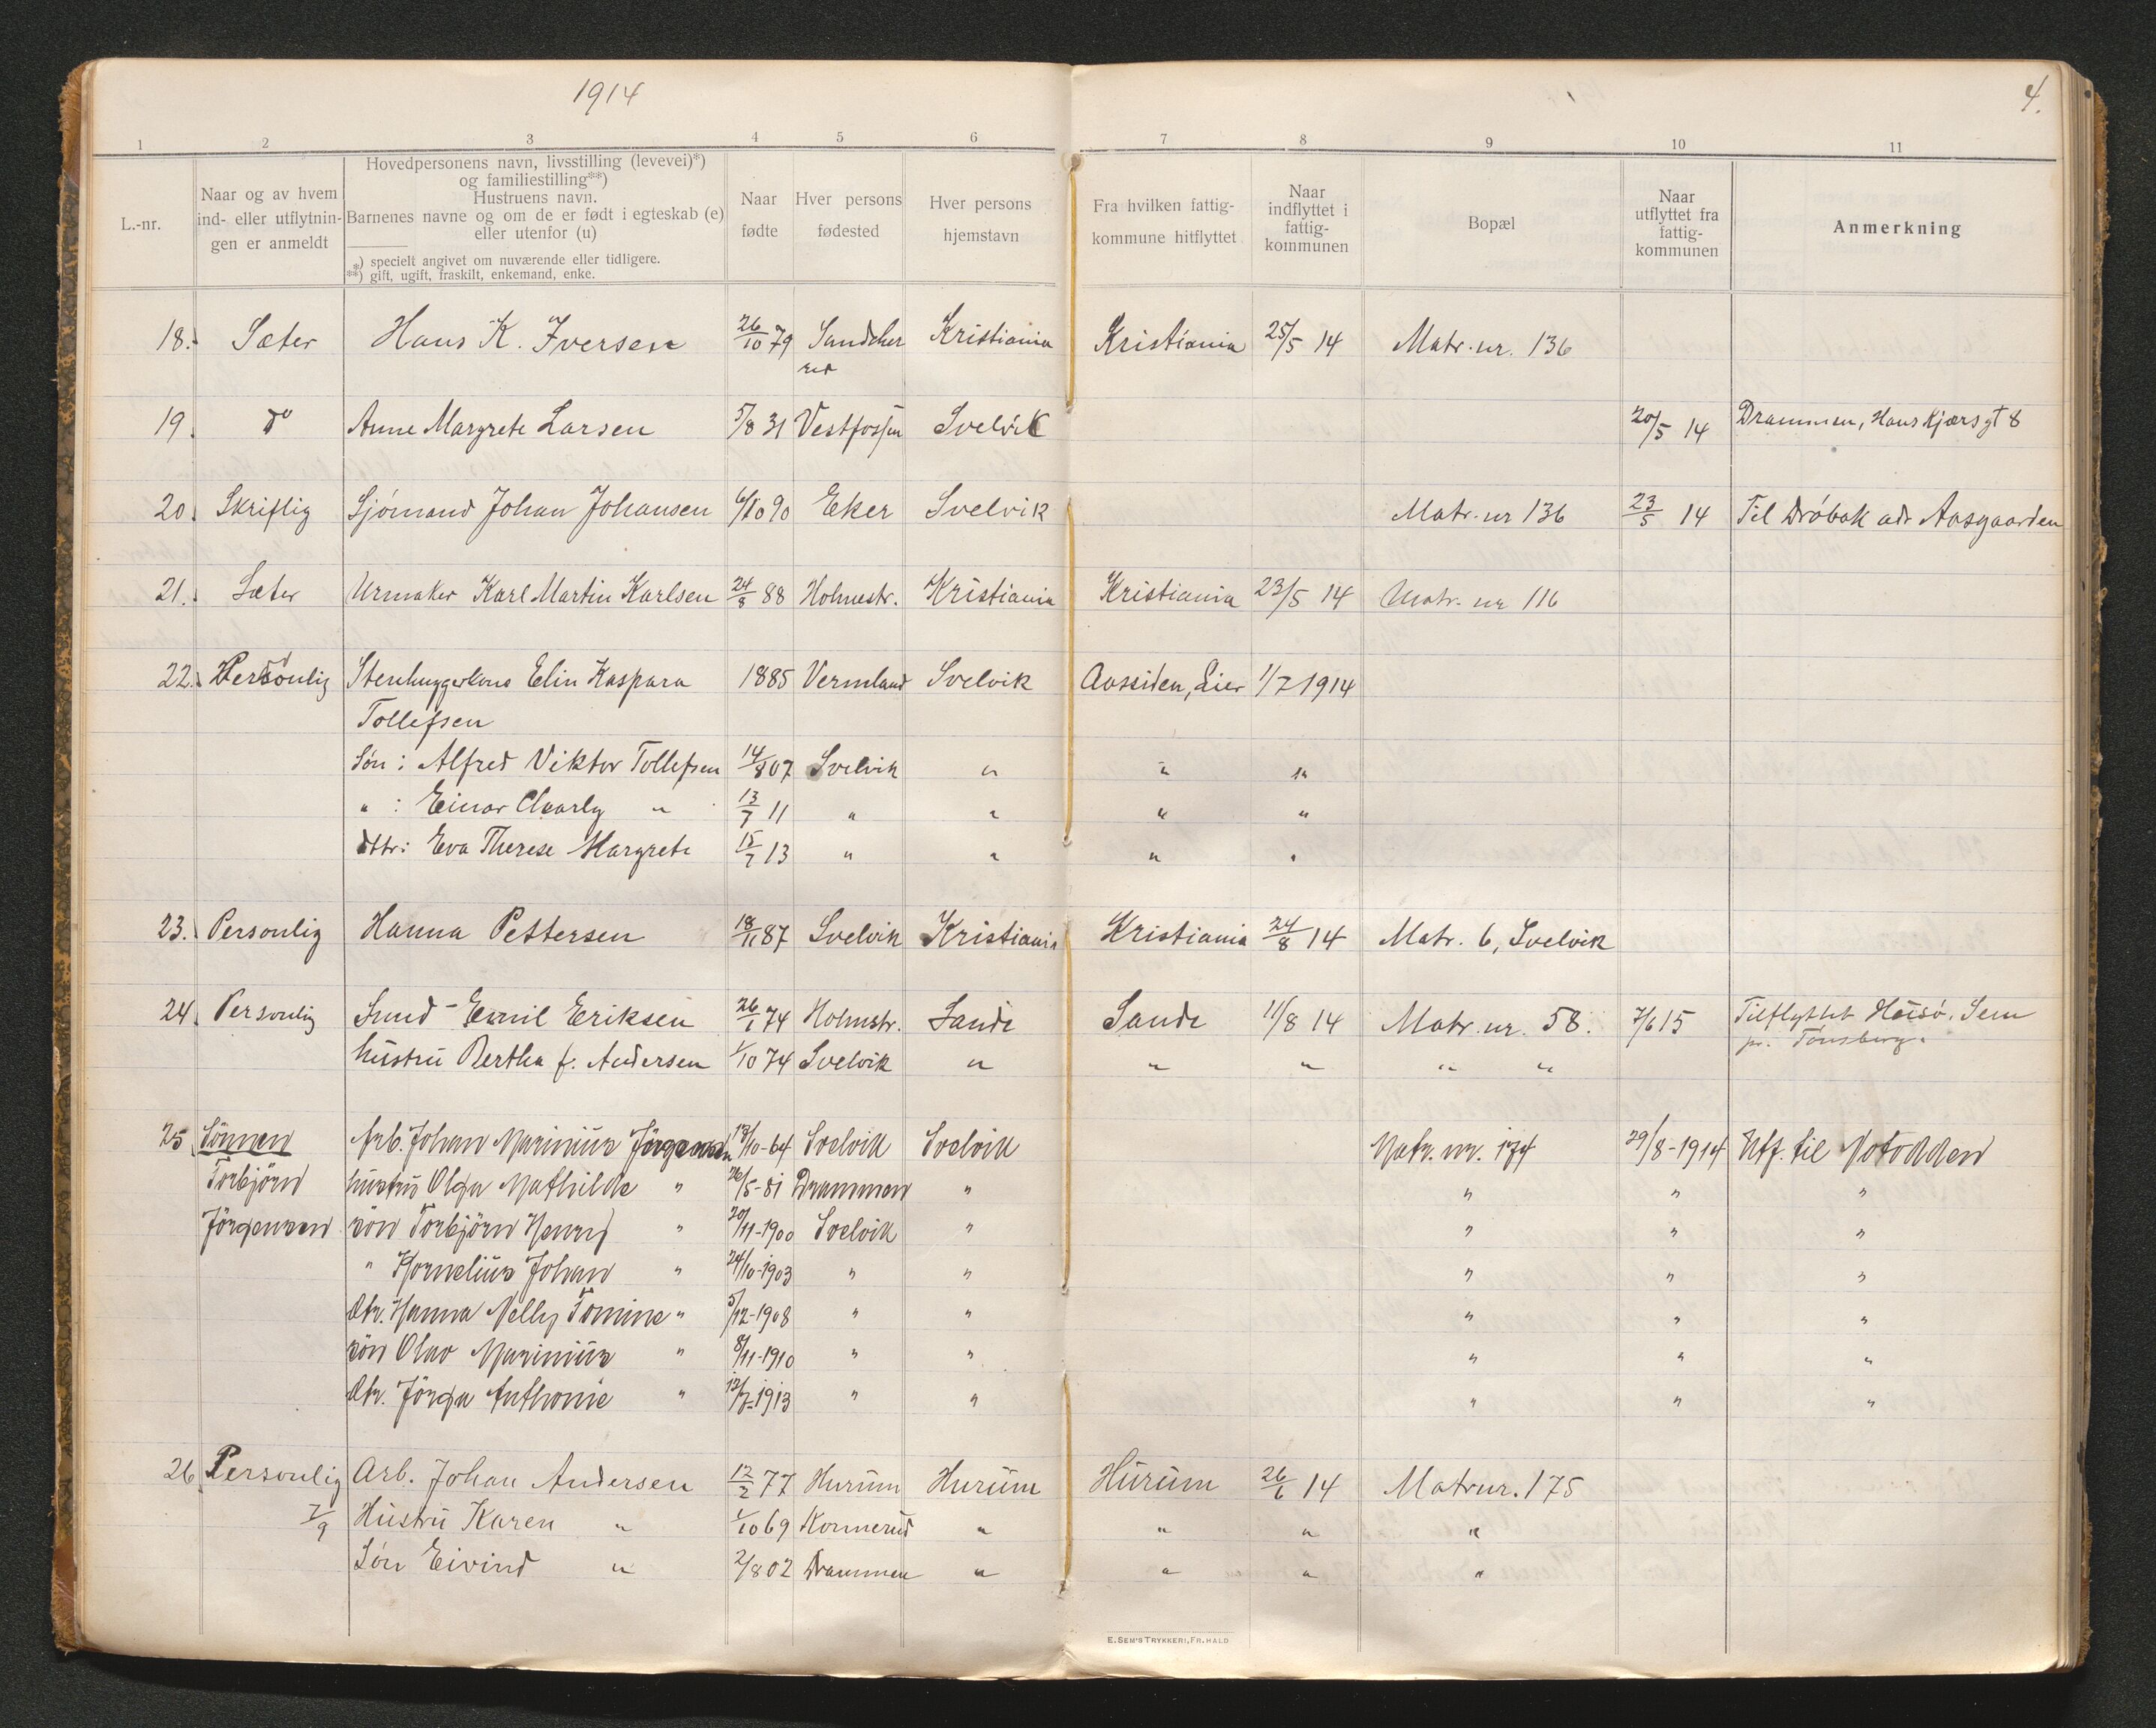 1914
4.
1 2 3 4 5 6 7 8 9 10 11
L.-nr.
Naar og av hvem
ind- eller utflytnin-
gen er anmeldt
Hovedpersonens navn, livsstilling (levevei)*)
og familiestilling**)
Hustruens navn.
Barnenes navne og om de er født i egteskab (e)
eller utenfor (u)
*) specielt angivet om nuværende eller tidligere.
**) gift, ugift, fraskilt, enkemand, enke.
Naar
fødte
Hver persons
fødested
Hver persons
hjemstavn
Fra hvilken fattig-
kommune hitflyttet
Naar
indflyttet i
fattig-
kommunen
Bopæl
Naar
utflyttet fra
fattig-
kommunen
Anmerkning
18. Sæter Hans K. Iversen 26/10 79 Sandeher Kristiania Kristiania 25/5 14 Matr. nr. 136
red
19. do Anne Margrete Larsen 5/8 31 Vestfossen Svelvik 20/5 14 Drammen, Hans Kjærs gt 8
20. Skriftlig Sjömand Johan Johansen 6/10 90 Eker Svelvik Matr. nr 136 23/5 14 Til Dröbak adr Aasgaarden
21. Sæter Urmaker Karl Martin Karlsen 24/8 88 Holmestr. Kristiania Kristiania 23/5 14 Matr. nr 116
22. Personlig Stenhuggerkone Elin Kaspara 1885 Vermland Svelvik Aassiden, Lier 1/7 1914
Tollefsen
Søn: Alfred Viktor Tollefsen 14/8 07 Svelvik " " "
" : Einar Charly " 13/7 11 " " " "
dttr: Eva Therese Margrete 15/7 13 " " " "
23. Personlig Hanna Pettersen 18/11 87 Svelvik Kristiania Kristiania 24/8 14 Matr. 6, Svelvik
24. Personlig Smed Emil Eriksen 26/1 74 Holmstr. Sande Sande 11/8 14 Matr. nr. 58. 7/6 15 Tilflyttet Høisö, Sem
pr. Tönsberg.
hustru Bertha f. Andersen 1/10 74 Svelvik " " " " "
25 Sönnen Arb. Johan Marinius Jörgensen 13/10-64 Svelvik Svelvik Matr. nr. 174 29/8-1914 Utf. til Notodden
Torbjörn hustru Olga Mathilde " 26/5-81 Drammen " " " "
Jörgensen sön Torbjörn Henry " 20/11-1900 Svelvik " " " "
" Kornelius Johan " 24/10-1903 " " " " "
dtr. Hanna Nelly Tomine " 5/12-1908 " " " " "
sön Olav Marinius " 8/11-1910 " " " " "
dtr. Jörga Anthonie " 12/7-1913 " " " " "
26 Personlig Arb. Johan Andersen 12/2 77 Hurum Hurum Hurum 26/6 14 Matrnr. 175
7/9 Hustru Karen " 1/10 69 Konnerud " " " "
Søn Eivind " 2/8 02 Drammen " " " "
E. SEM'S TRYKKERI, FR. HALD